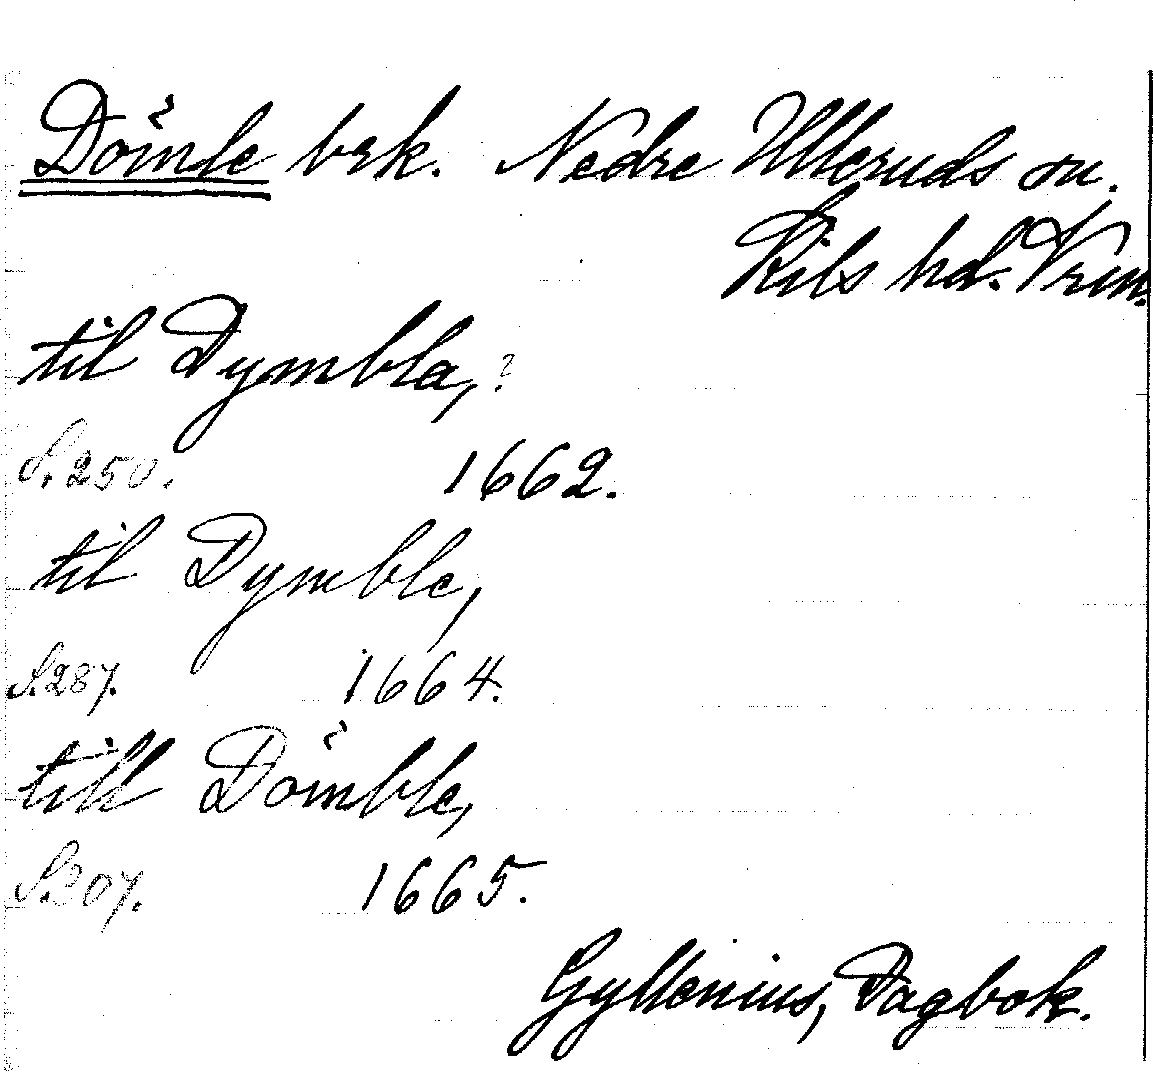 Dömle brk. Nedre Ulleruds sn.
Kils hd. Vrml.
til Dymbla, ?
S. 250. 1662.
til Dymble,
S. 287. 1664.
till Dömble,
S. 307. 1665.
Gyllenius, Dagbok.